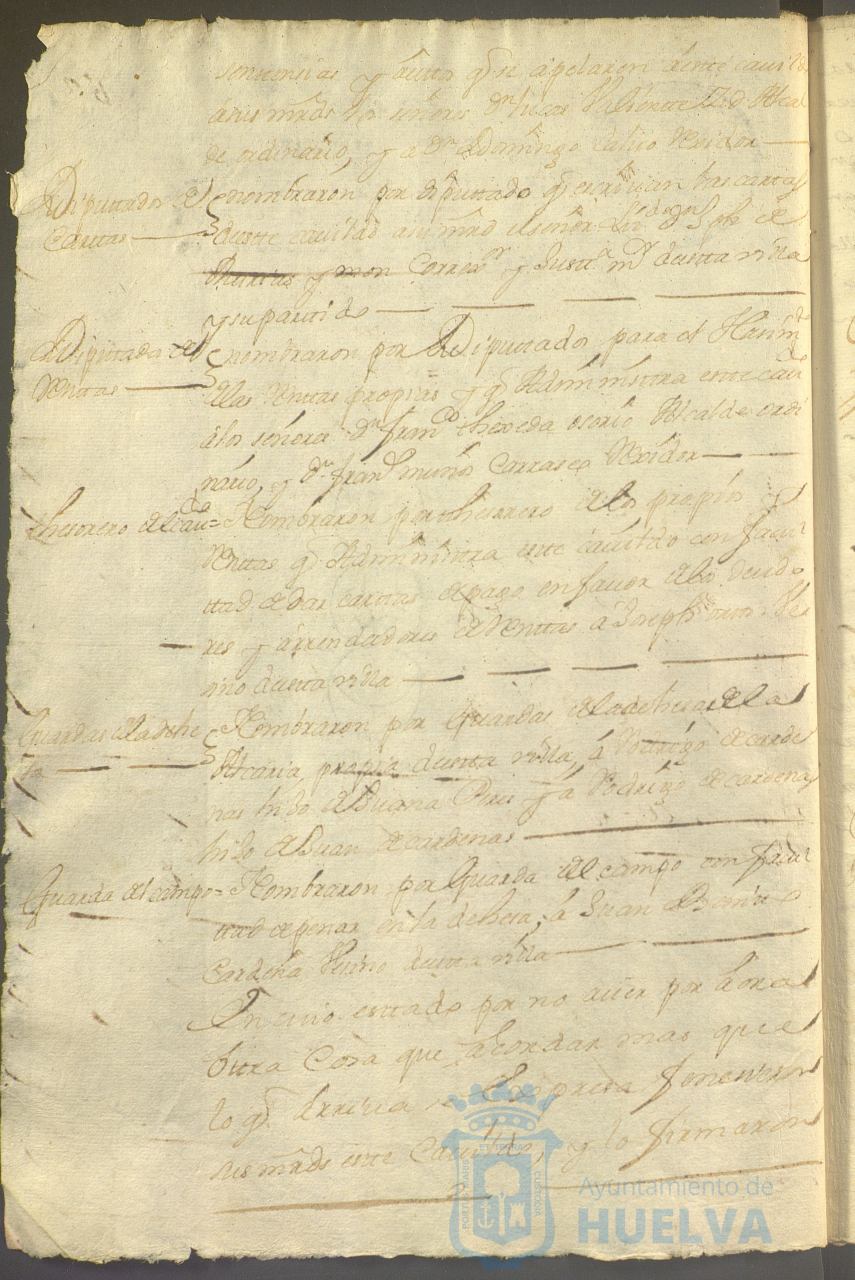 sentencias y autos q̃ se apelaren deste cavildo
a sus mrds los señores Dn Lucas Alcal
de ordinario, y a Dn Domingo Calvo Rexidor
Diputados de
Cartas
nombraron por diputado q̃ escrivan las cartas
deste cavildo a su mrd el señor Lizdo Dn Jph de
y mon Correxor y Justa mr desta villa
y su partido
Diputados de
Renttas
nombraron por Diputados para el
de las Renttas propias y q̃ Administra este cavdo
a los señores Dn Franco thexeda osorio Alcalde ordi
nario, y Dn Franco muños Carrasco Rexidor
thesorero del cavdo =
Nombraron por thesorero de los propios y
Renttas q̃ Administra este cavildo con facul
ttad de dar carttas de pago en favor de los deudo
res y arrendadores de Renttas a Joseph Ve
sino desta villa
Guardas de la dehe
sa
Nombraron por Guardas de la dehesa de la
Alcaria, propia desta villa, a Rodrigo de carde
nas hijo de Juana Peres y a Rodrigo de cardenas
hijo de Juan de cardenas
Guarda del campo =
Nombraron por Guarda del campo con facul
ttad de penar en la dehesa, a Juan
Cardeña Vesino desta villa
En cuio esttado por no aver por aora
ottra Cosa que acordar mas que
lo q̃ arriva se Expresa fenecieron
sus mrds este Cavildo, y lo firmaron
Ayuntamiento de
HUELVA